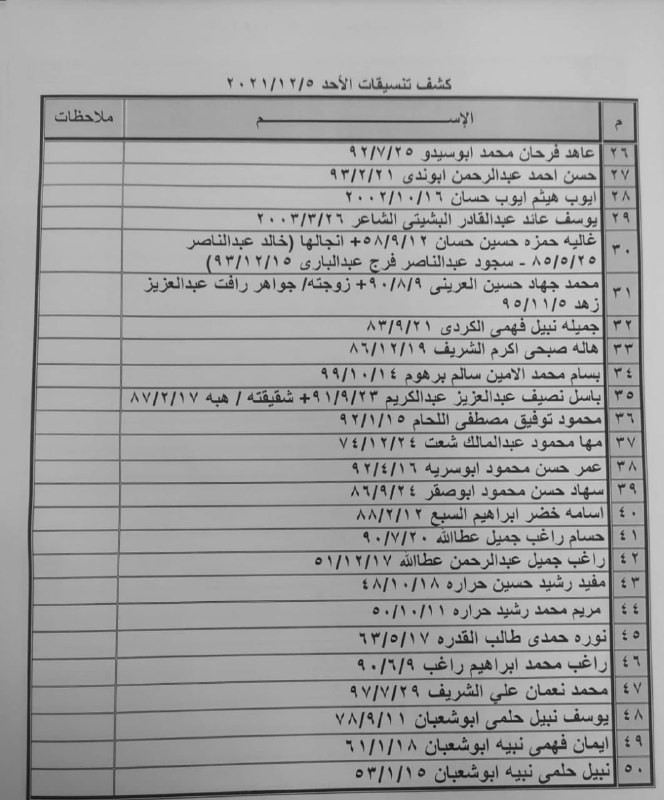 كشف تنسيقات الأحد ٢٠٢١/١٢/٥
م الإســـــم ملاحظات
٢٦ عاهد فرحان محمد ابوسيدو ٩٢/٧/٢٥
٢٧ حسن احمد عبدالرحمن ابوندى ٩٣/٢/٢١
٢٨ ايوب هيثم ايوب حسان ٢٠٠٢/١٠/١٦
٢٩ يوسف عائد عبدالقادر البشيتى الشاعر ٢٠٠٣/٣/٢٦
٣٠ غاليه حمزه حسين حسان ٥٨/٩/١٢+ انجالها (خالد عبدالناصر
٨٥/٥/٢٥ - سجود عبدالناصر فرج عبدالبارى ٩٣/١٢/١٥)
٣١ محمد جهاد حسين العرينى ٩٠/٨/٩+ زوجته/ جواهر رافت عبدالعزيز
زهد ٩٥/١١/٥
٣٢ جميله نبيل فهمى الكردى ٨٣/٩/٢١
٣٣ هاله صبحى اكرم الشريف ٨٦/١٢/١٩
٣٤ بسام محمد الامين سالم برهوم ٩٩/١٠/١٤
٣٥ باسل نصيف عبدالعزيز عبدالكريم ٩١/٩/٢٣+ شقيقته / هبه ٨٧/٢/١٧
٣٦ محمود توفيق مصطفى اللحام ٩٢/١/١٥
٣٧ مها محمود عبدالمالك شعت ٧٤/١٢/٢٤
٣٨ عمر حسن محمود ابوسريه ٩٢/٤/١٦
٣٩ سهاد حسن محمود ابوصقر ٨٦/٩/٢٤
٤٠ اسامه خضر ابراهيم السبع ٨٨/٢/١٢
٤١ حسام راغب جميل عطاالله ٩٠/٧/٢٠
٤٢ راغب جميل عبدالرحمن عطاالله ٥١/١٢/١٧
٤٣ مفيد رشيد حسين حراره ٤٨/١٠/١٨
٤٤ مريم محمد رشيد حراره ٥٠/١٠/١١
٤٥ نوره حمدى طالب القدره ٦٣/٥/١٧
٤٦ راغب محمد ابراهيم راغب ٩٠/٦/٩
٤٧ محمد نعمان علي الشريف ٩٧/٧/٢٩
٤٨ يوسف نبيل حلمى ابوشعبان ٧٨/٩/١١
٤٩ ايمان فهمى نبيه ابوشعبان ٦١/١/١٨
٥٠ نبيل حلمى نبيه ابوشعبان ٥٣/١/١٥